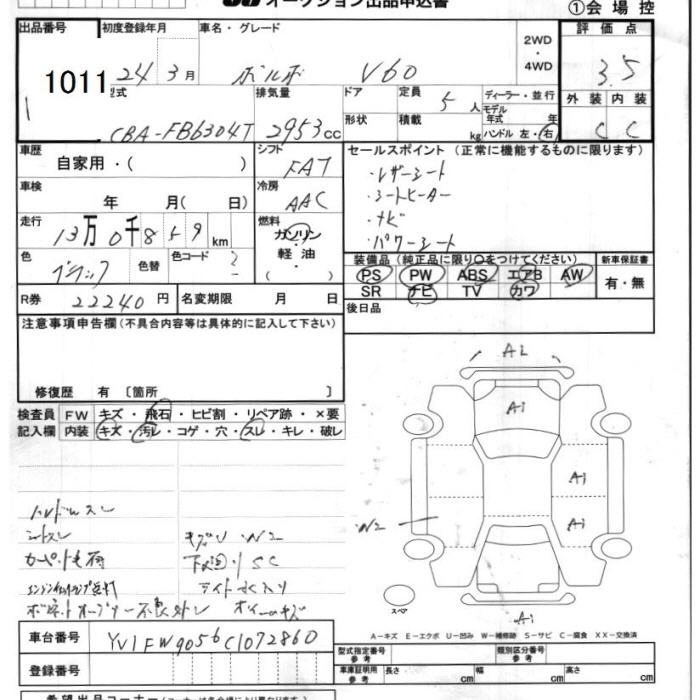 オークション出品申込書
①会場控
出品番号 1011
初度登録年月 24年3月
車名・グレード ボルボ V60
2WD・4WD
評価点 3.5
外装 内装
C C
型式 CBA-FB6304T
排気量 2953cc
ドア 形状
定員 5人
積載 kg
ディーラー・並行
モデル年式 年
ハンドル 左・右
車歴 自家用・( )
シフト FAT
車検 年 月( 日)
冷房 AAC
走行 13万0千859km
燃料 ガソリン 軽油 ( )
色 ブラック 色替 色コード
R券 22240円
名変期限 月 日
セールスポイント (正常に機能するものに限ります)
・レザーシート
・シートヒーター
・ナビ
・パワーシート
装備品(純正品に限り○をつけてください) 新車保証書
PS PW ABS エアB AW 有・無
SR ナビ TV カワ
後日品
注意事項申告欄(不具合内容等は具体的に記入して下さい)
修復歴 有 〔箇所 〕
検査員 FW キズ・飛石・ヒビ割・リペア跡・×要
記入欄 内装 キズ・汚レ・コゲ・穴・スレ・キレ・破レ
A2
A1
A1
A1
W2
A1
スペア
ハンドルスレ
シートスレ
カーペット色荷
キズU・W2
下廻りSC
エンジンチェックランプ点灯
ライト水入り
ボンネットオープナー不良外レ
ホイールキズ
A-キズ E-エクボ U-凹み W-補修跡 S-サビ C-腐食 XX-交換済
車台番号 YV1FW9056C1072860
登録番号
型式指定番号 参考
類別区分番号 参考
車庫証明用 参考 長さ cm 幅 cm 高さ cm
希望出品コーナー